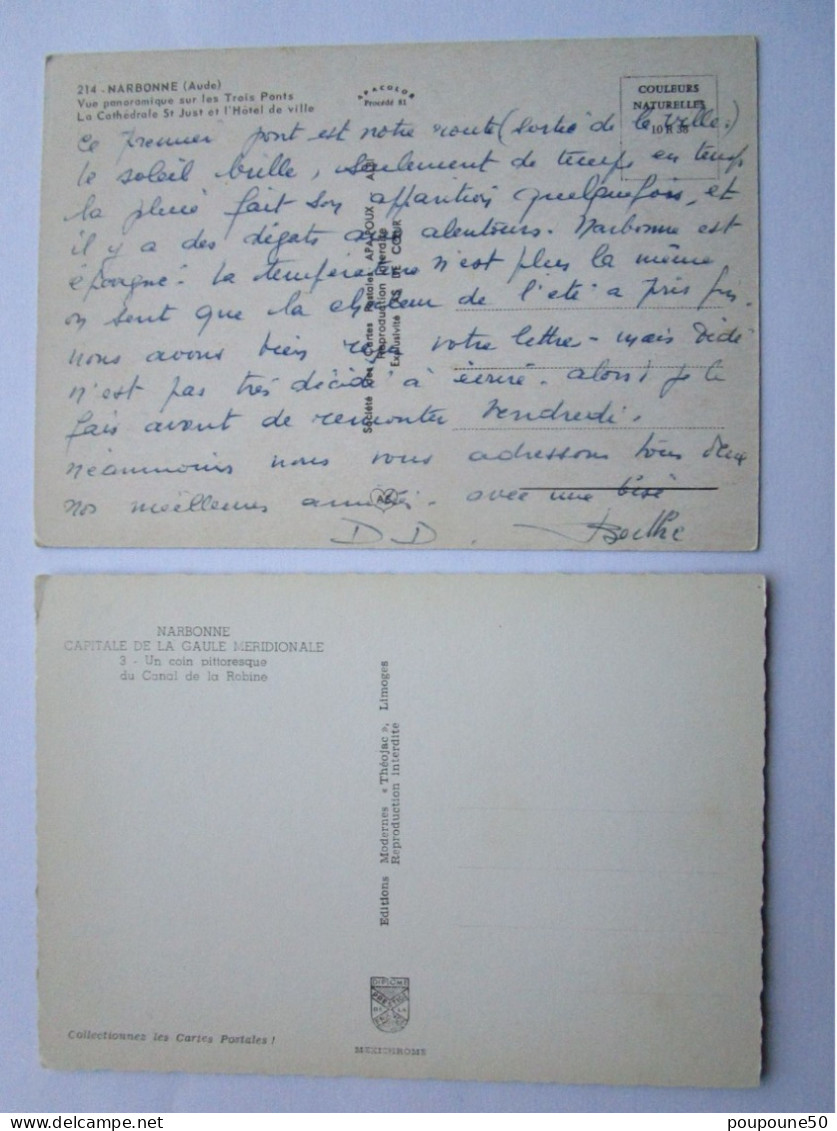 214 - NARBONNE (Aude)
Vue panoramique sur les Trois Ponts
La Cathédrale St Just et l'Hôtel de ville
APACOLOR
Procédé 81
COULEURS
NATURELLES
10 R 30
Ce premier pont est notre route (sortie de la ville.)
le soleil brille, seulement de temps en temps
la pluie fait son apparition quelquefois, et
il y a des dégats aux alentours. Narbonne est
épargné. La température n'est plus la même
on sent que la chaleur de l'été a pris fin.
nous avons bien reçu votre lettre - mais Dédé
n'est pas très décidé à écrire. alors je le
fais avant de remonter Vendredi.
Néanmoins nous vous adressons tous deux
nos meilleures amitiés. avec une bise
DD. Berthe
Société des Cartes Postales APA-POUX - ALBI
Reproduction interdite
Exclusivité AS DE CŒUR
NARBONNE
CAPITALE DE LA GAULE MERIDIONALE
3 - Un coin pittoresque
du Canal de la Robine
Editions Modernes « Théojac », Limoges
Reproduction interdite
DIPLOME
PRESTIGE
DE LA
Collectionnez les Cartes Postales !
MEXICHROME
poupoune50